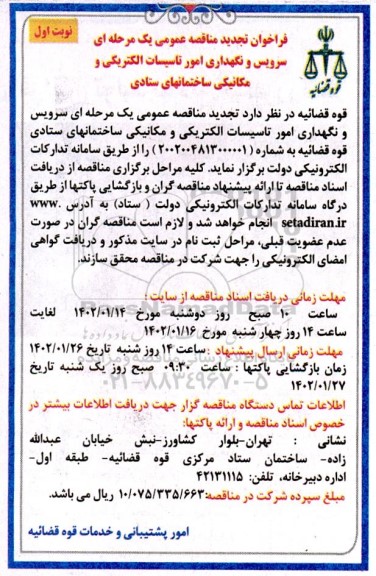 نوبت اول
فراخوان تجدید مناقصه عمومی یک مرحله ای
سرویس و نگهداری امور تاسیسات الکتریکی و
مکانیکی ساختمانهای ستادی
قوه قضائیه
قوه قضائیه در نظر دارد تجدید مناقصه عمومی یک مرحله ای سرویس
و نگهداری امور تاسیسات الکتریکی و مکانیکی ساختمانهای ستادی
قوه قضائیه به شماره (۲۰۰۲۰۰۴۸۱۳۰۰۰۰۰۱) را از طریق سامانه تدارکات
الکترونیکی دولت برگزار نماید. کلیه مراحل برگزاری مناقصه از دریافت
اسناد مناقصه تا ارائه پیشنهاد مناقصه گران و بازگشایی پاکتها از طریق
درگاه سامانه تدارکات الکترونیکی دولت ( ستاد) به آدرس .www
setadiran.ir انجام خواهد شد و لازم است مناقصه گران در صورت
عدم عضویت قبلی، مراحل ثبت نام در سایت مذکور و دریافت گواهی
امضای الکترونیکی را جهت شرکت در مناقصه محقق سازند.
مهلت زمانی دریافت اسناد مناقصه از سایت:
ساعت ۱۰ صبح روز دوشنبه مورخ ۱۴۰۲/۰۱/۱۴ لغایت
ساعت ۱۴ روز چهار شنبه مورخ ۱۴۰۲/۰۱/۱۶
مهلت زمانی ارسال پیشنهاد : ساعت ۱۴ روز شنبه تاریخ ۱۴۰۲/۰۱/۲۶
زمان بازگشایی پاکتها : ساعت ۰۹:۳۰ صبح روز یک شنبه تاریخ
۱۴۰۲/۰۱/۲۷
۰۲۱-۸۸۳۴۹۶۷۰-۵
اطلاعات تماس دستگاه مناقصه گزار جهت دریافت اطلاعات بیشتر در
خصوص اسناد مناقصه و ارائه پاکتها:
نشانی : تهران-بلوار کشاورز-نبش خیابان عبدالله
زاده- ساختمان ستاد مرکزی قوه قضائیه- طبقه اول-
اداره دبیرخانه، تلفن: ۴۲۱۳۱۱۱۵
مبلغ سپرده شرکت در مناقصه:۱۰/۰۷۵/۳۳۵/۶۶۳ ریال می باشد.
امور پشتیبانی و خدمات قوه قضائیه